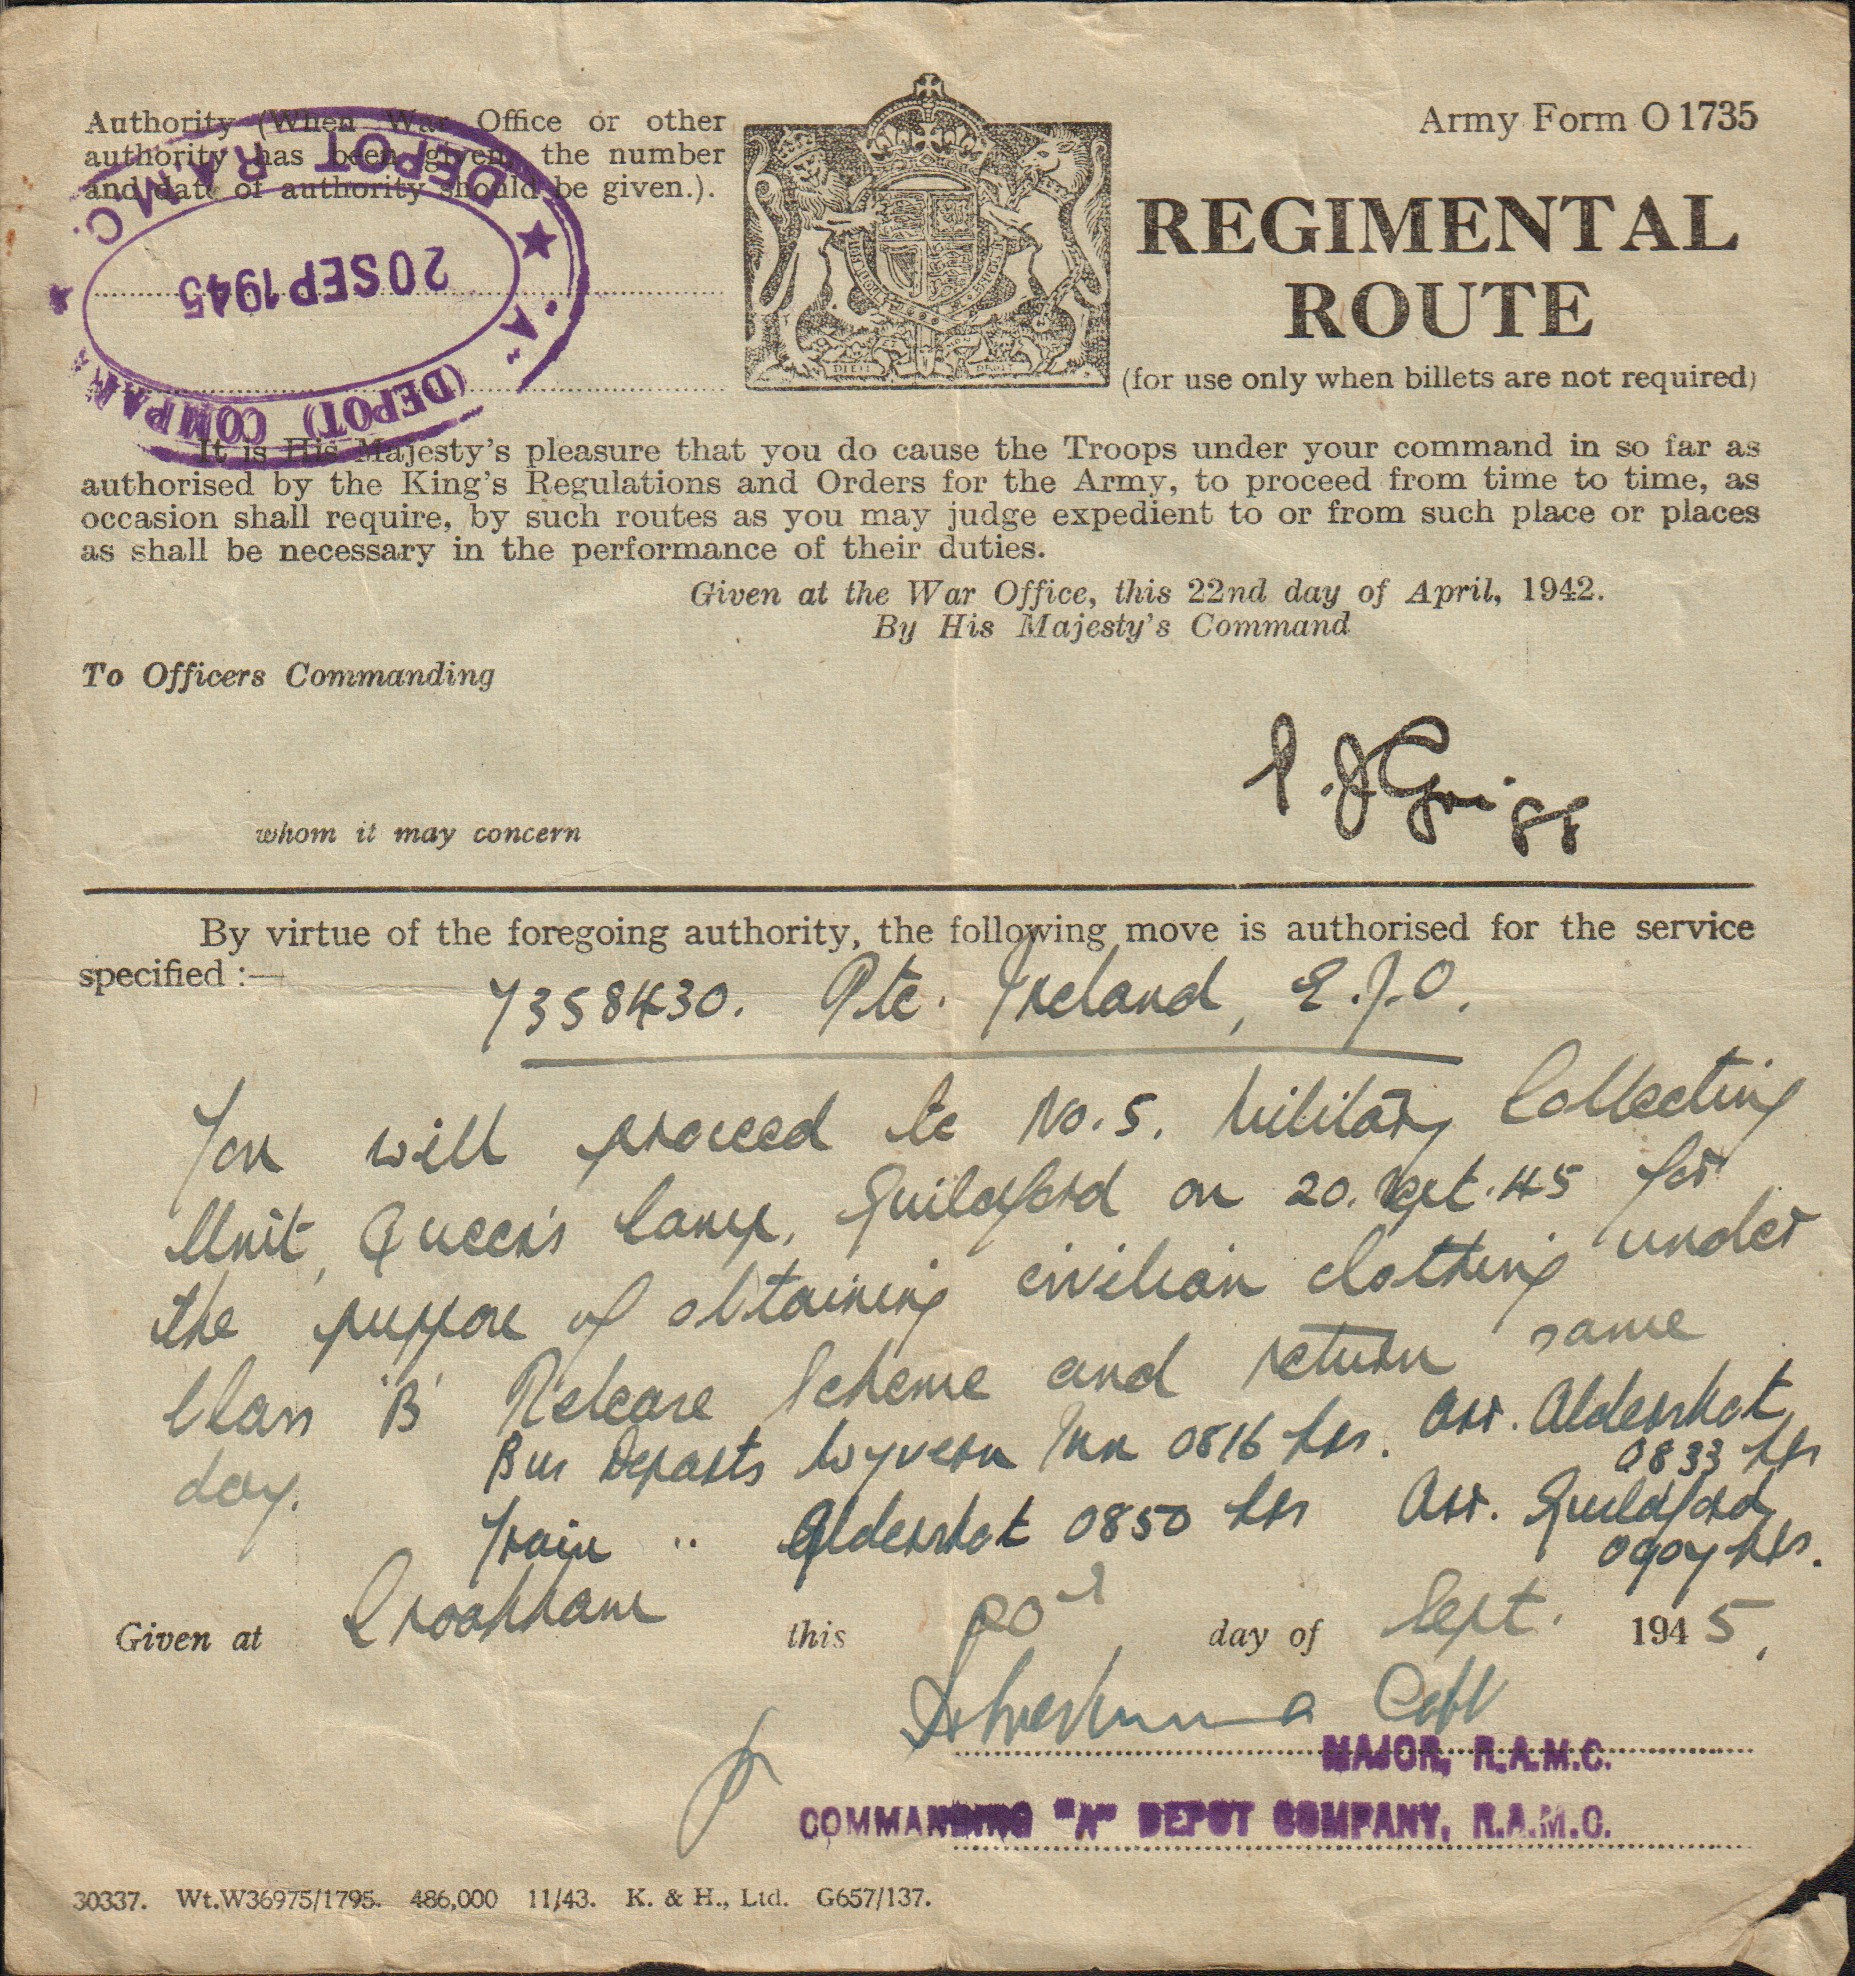 Authority (When War Office or other
authority has been given, the number
and date of authority should be given.).
DEPOT R.A.M.C.
20 SEP 1945
"A" (DEPOT) COMPAN
Army Form O 1735
REGIMENTAL
ROUTE
(for use only when billets are not required)
It is His Majesty's pleasure that you do cause the Troops under your command in so far as
authorised by the King's Regulations and Orders for the Army, to proceed from time to time, as
occasion shall require, by such routes as you may judge expedient to or from such place or places
as shall be necessary in the performance of their duties.
Given at the War Office, this 22nd day of April, 1942.
By His Majesty's Command
To Officers Commanding
P.J Grigg
whom it may concern
By virtue of the foregoing authority, the following move is authorised for the service
specified :—
7358430. Pte. Ireland, E.J.O.
You will proceed to No.5. Military Collecting
Unit, Queen's Camp, Guildford on 20.Sept.45 for
the purpose of obtaining civilian clothing under
Class 'B' Release Scheme and return same
day.
Bus Departs Wyvern Inn 0816 hrs. Arr. Aldershot
0833 hrs
Train " Aldershot 0850 hrs Arr. Guildford
0907 hrs.
Given at Crookham this 20 day of Sept. 1945.
MAJOR, R.A.M.C.
COMMANDING "A" DEPOT COMPANY, R.A.M.C.
30337. Wt.W36975/1795. 486,000 11/43. K. & H., Ltd. G657/137.